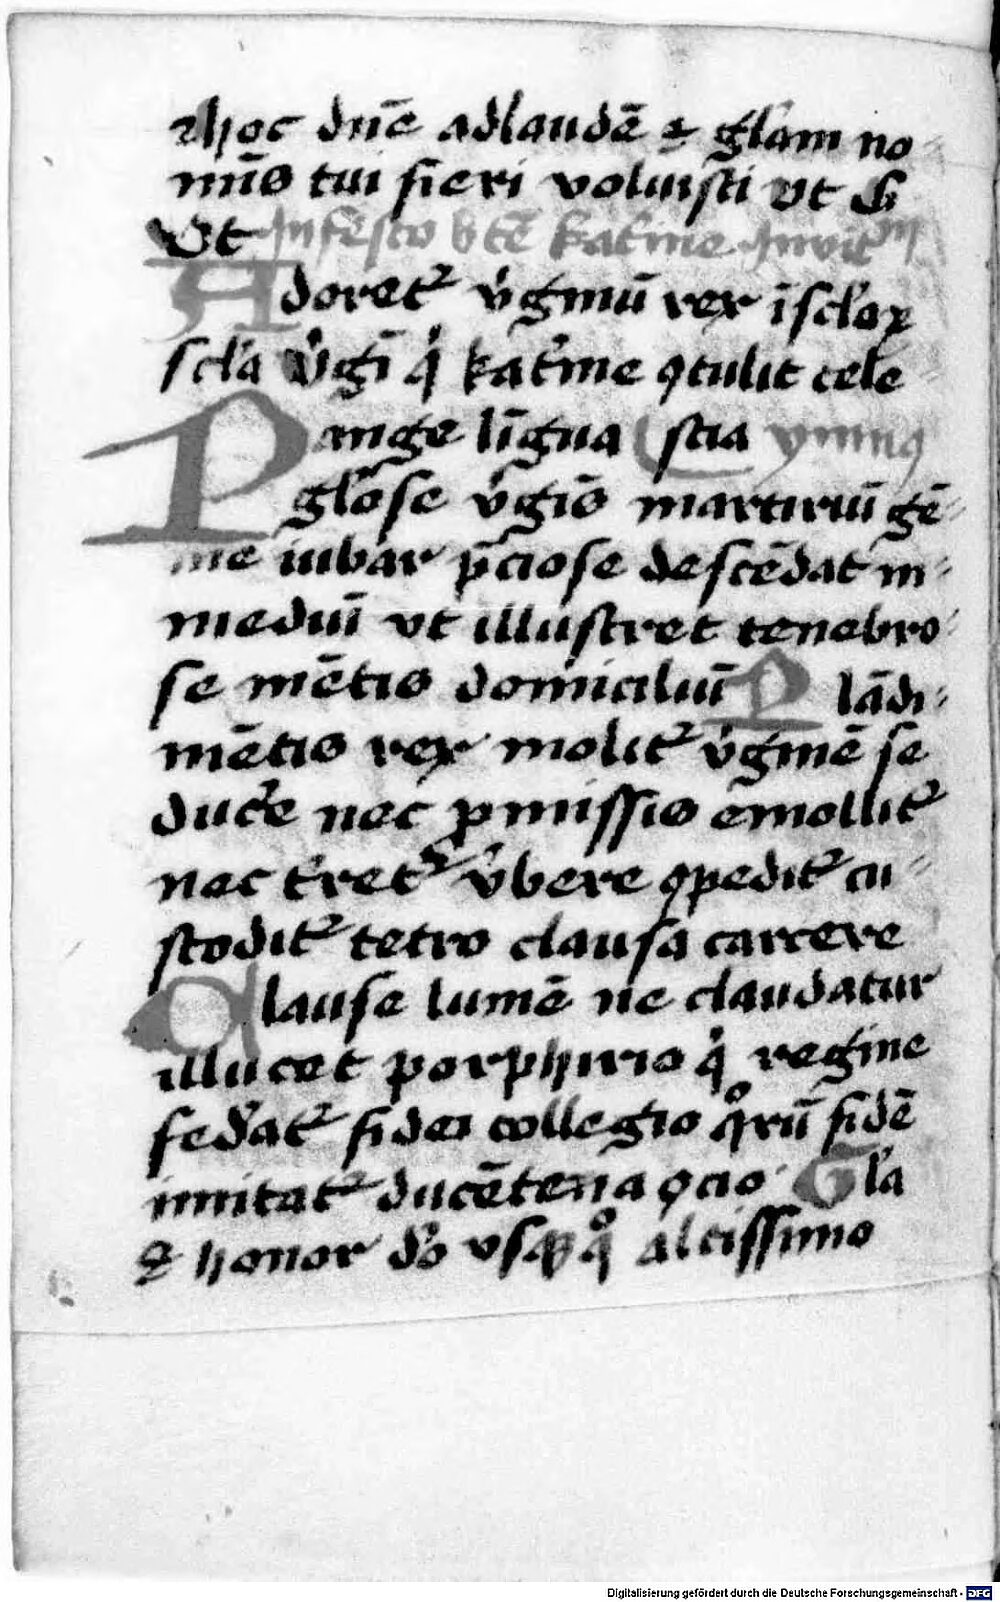 ⁊ hoc dn̄e ad laudē ⁊ gl̓am no-
mīs tui fieri voluisti vt G
Vt In festo btē kat̓ine Inuitm̄
Adoret᷑ v̓ginū rex ī sclōꝝ
scl̓a v̓gī q̓ kat̓ine ꝯtulit cele-
Pange līgua stia ymnꝰ
gl̓ose v̓gīs martiriū gē-
me iubar p̄ciose descēdat in-
mediū vt illustret tenebro-
se mētis domiciliū Blādi-
mētis rex molit᷑ v̓ginē se
duc̓e nec ꝓmissis emollit᷑
nec t̓ret᷑ v̓bere ꝯpedit᷑ cu-
stodit᷑ tetro clausa carcere
Clause lumē ne claudatur
illucet porphirio q̓ regine
fed̓at᷑ fidei collegio qͦrū fidē
imitat᷑ ducētena ꝯcio Gl̓a
⁊ honor d̓o vsqꝫqͦ altissimo
Digitalisierung gefördert durch die Deutsche Forschungsgemeinschaft - DFG